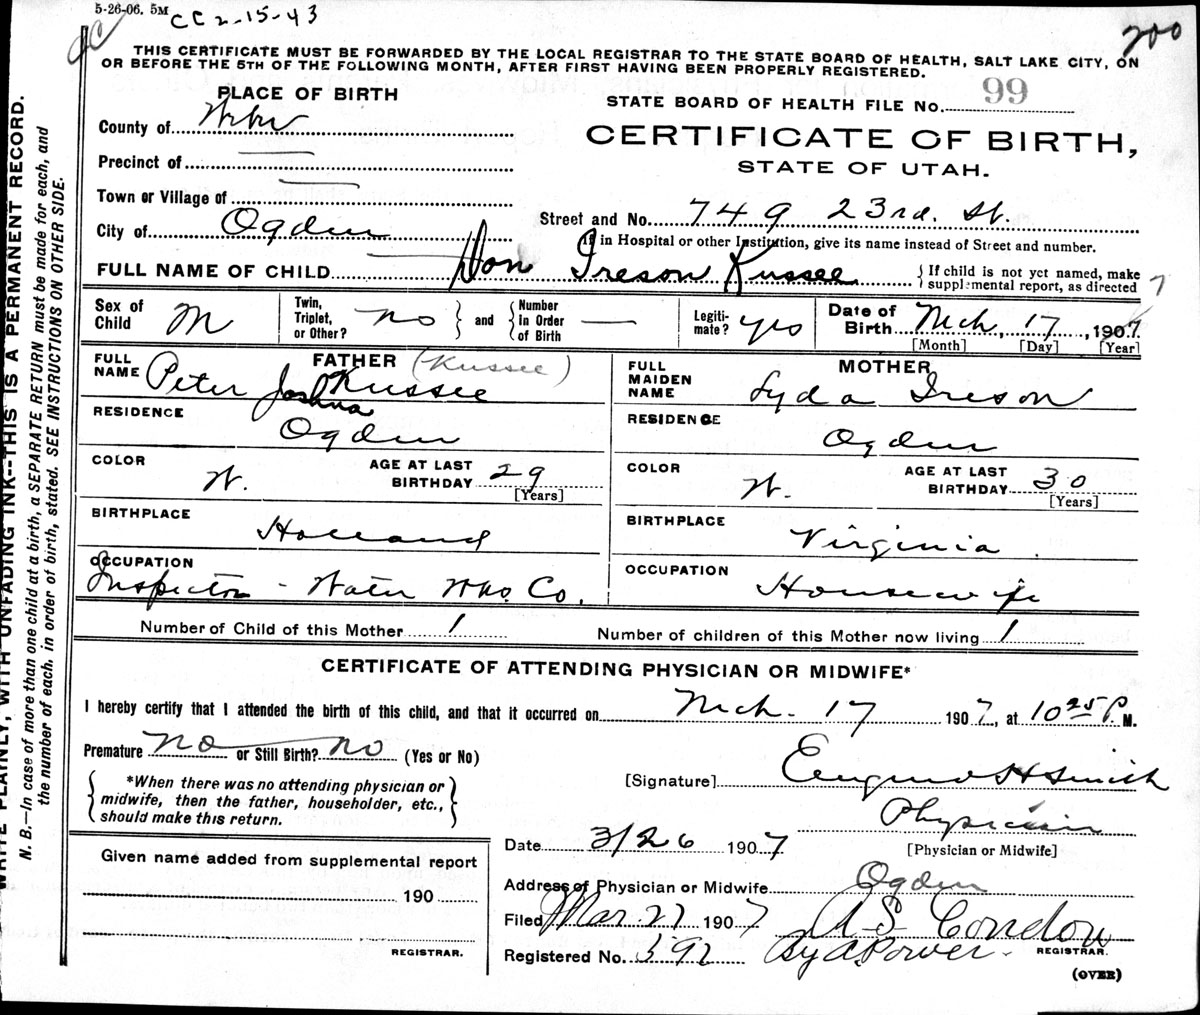 5-26-06. 5M CC 2-15-43
200
THIS CERTIFICATE MUST BE FORWARDED BY THE LOCAL REGISTRAR TO THE STATE BOARD OF HEALTH, SALT LAKE CITY, ON
OR BEFORE THE 5TH OF THE FOLLOWING MONTH, AFTER FIRST HAVING BEEN PROPERLY REGISTERED.
WRITE PLAINLY, WITH UNFADING INK--THIS IS A PERMANENT RECORD.
N. B.—In case of more than one child at a birth, a SEPARATE RETURN must be made for each, and
the number of each, in order of birth, stated. SEE INSTRUCTIONS ON OTHER SIDE.
PLACE OF BIRTH
County of Weber
Precinct of —
Town or Village of —
City of Ogden
STATE BOARD OF HEALTH FILE No. 99
CERTIFICATE OF BIRTH,
STATE OF UTAH.
Street and No. 749 23rd. St.
If in Hospital or other Institution, give its name instead of Street and number.
FULL NAME OF CHILD Don Ireson Kussee
If child is not yet named, make
supplemental report, as directed
Sex of Child M
Twin, Triplet, or Other? no and Number in Order of Birth —
Legitimate? yes
Date of Birth Mch, 17, 1907
[Month] [Day] [Year]
FATHER (Kussee)
FULL NAME Peter Joshua Kussee
RESIDENCE
Ogden
COLOR W. AGE AT LAST BIRTHDAY 29
[Years]
BIRTHPLACE
Holland
OCCUPATION
Inspector - Water Wks. Co.
MOTHER
FULL MAIDEN NAME Lyda Ireson
RESIDENCE
Ogden
COLOR W. AGE AT LAST BIRTHDAY 30
[Years]
BIRTHPLACE
Virginia
OCCUPATION
Housewife
Number of Child of this Mother 1 Number of children of this Mother now living 1
CERTIFICATE OF ATTENDING PHYSICIAN OR MIDWIFE*
I hereby certify that I attended the birth of this child, and that it occurred on Mch. 17 1907, at 10 25 P. M.
Premature no or Still Birth? no (Yes or No)
*When there was no attending physician or
midwife, then the father, householder, etc.,
should make this return.
[Signature] Eugene H Smith
Physician
[Physician or Midwife]
Date 3/26 1907
Address of Physician or Midwife Ogden
Filed Mar. 27 1907 A S Condon
Registered No. 592 By A. Power. REGISTRAR.
(OVER)
Given name added from supplemental report
190
REGISTRAR.